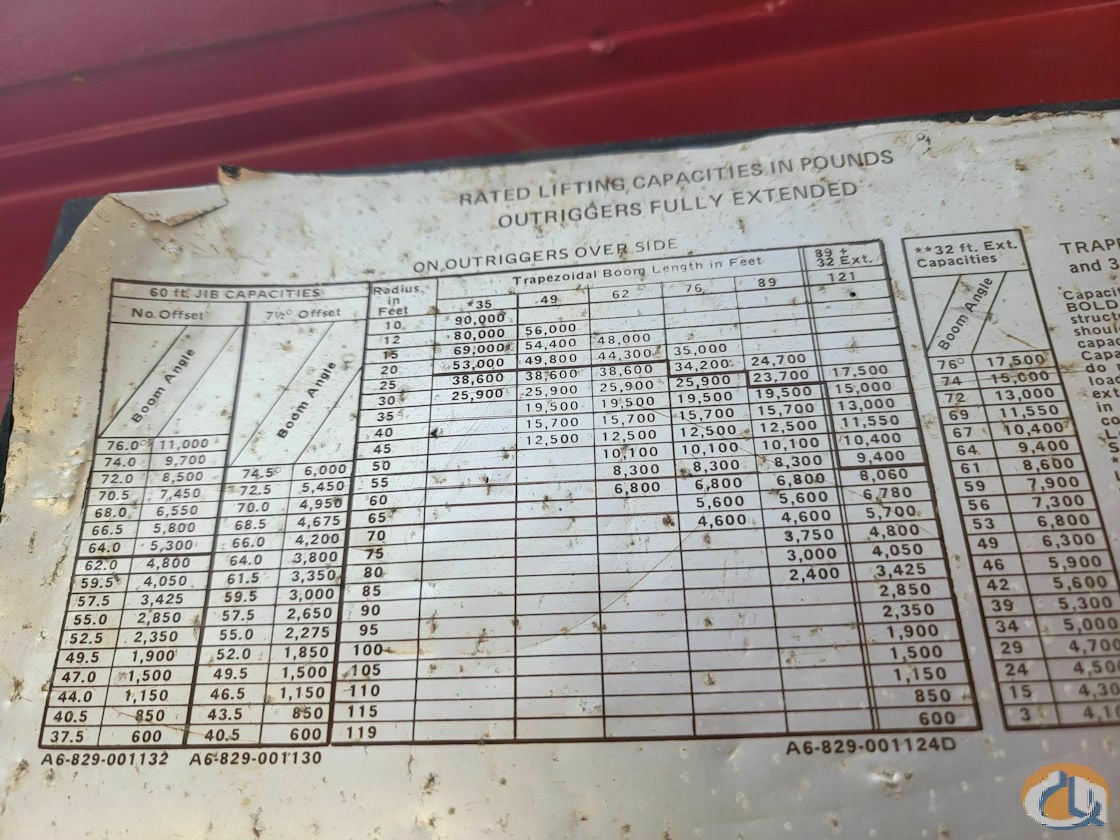 RATED LIFTING CAPACITIES IN POUNDS
OUTRIGGERS FULLY EXTENDED
ON OUTRIGGERS OVER SIDE
60 ft. JIB CAPACITIES
No. Offset 7½° Offset
Boom Angle
Boom Angle
Radius in Feet
Trapezoidal Boom Length in Feet
89 +
32 Ext.
*35 49 62 76 89 121
10 90,000
12 80,000 56,000
15 69,000 54,400 48,000
20 53,000 49,800 44,300 35,000
25 38,600 38,600 38,600 34,200 24,700
30 25,900 25,900 25,900 25,900 23,700 17,500
35 19,500 19,500 19,500 19,500 15,000
76.0° 11,000 40 15,700 15,700 15,700 15,700 13,000
74.0 9,700 45 12,500 12,500 12,500 12,500 11,550
72.0 8,500 74.5° 6,000 50 10,100 10,100 10,100 10,400
70.5 7,450 72.5 5,450 55 8,300 8,300 8,300 9,400
68.0 6,550 70.0 4,950 60 6,800 6,800 6,800 8,060
66.5 5,800 68.5 4,675 65 5,600 5,600 6,780
64.0 5,300 66.0 4,200 70 4,600 4,600 5,700
62.0 4,800 64.0 3,800 75 3,750 4,800
59.5 4,050 61.5 3,350 80 3,000 4,050
57.5 3,425 59.5 3,000 85 2,400 3,425
55.0 2,850 57.5 2,650 90 2,850
52.5 2,350 55.0 2,275 95 2,350
49.5 1,900 52.0 1,850 100 1,900
47.0 1,500 49.5 1,500 105 1,500
44.0 1,150 46.5 1,150 110 1,150
40.5 850 43.5 850 115 850
37.5 600 40.5 600 119 600
A6-829-001132 A6-829-001130 A6-829-001124D
**32 ft. Ext.
Capacities
Boom Angle
76° 17,500
74 15,000
72 13,000
69 11,550
67 10,400
64 9,400
61 8,600
59 7,900
56 7,300
53 6,800
49 6,300
46 5,900
42 5,600
39 5,300
34 5,000
29 4,700
24
15
3
and 3
BOLD